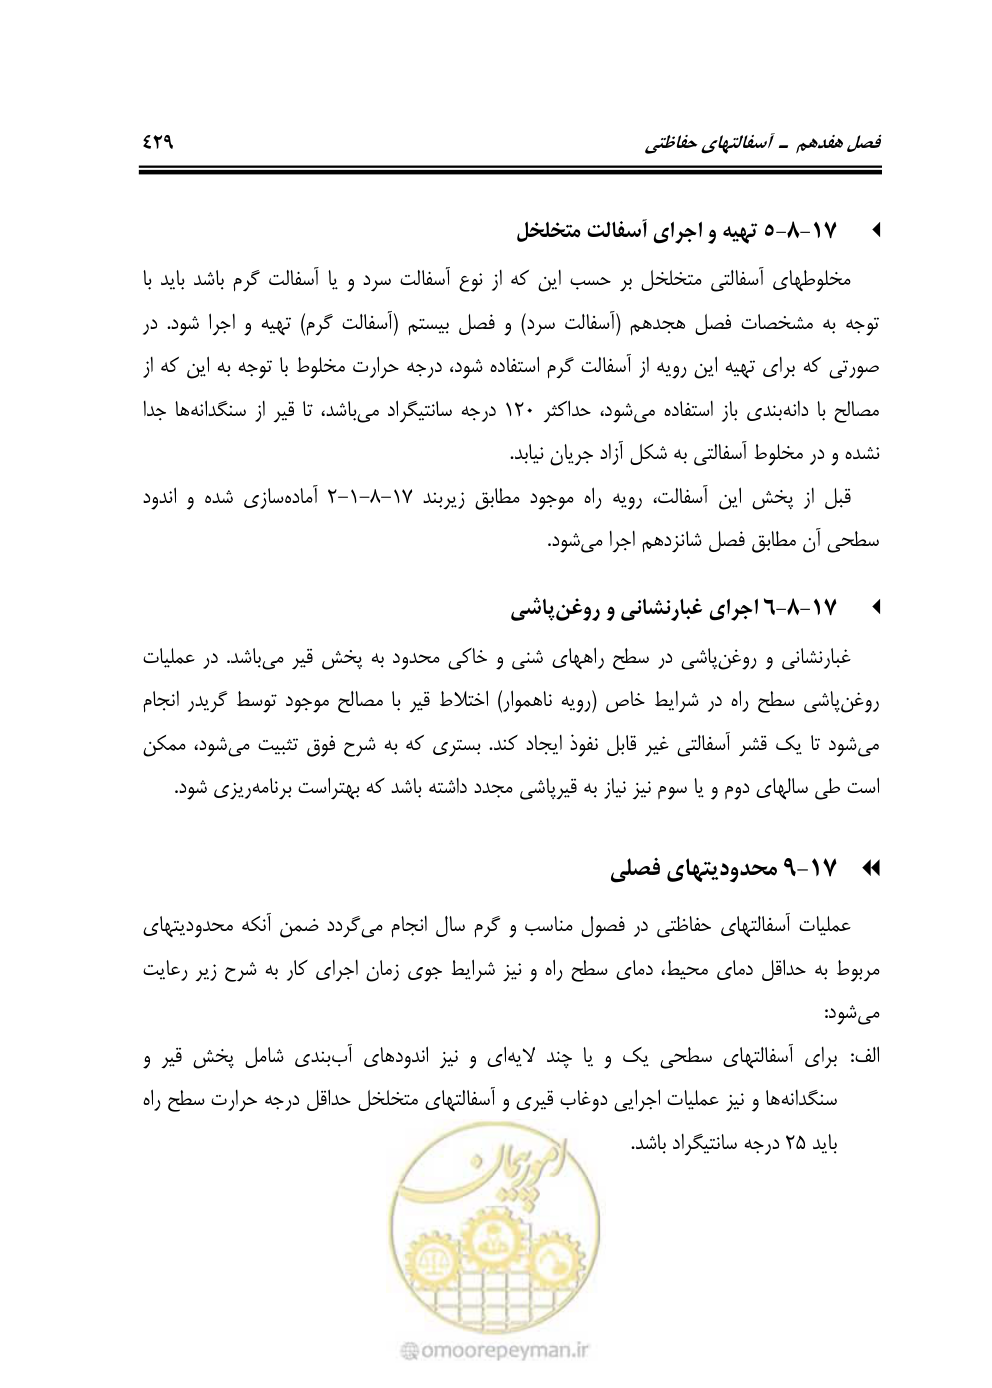 فصل هفدهم ـ آسفالتهای حفاظتی ٤٢٩
١٧-٨-٥ تهیه و اجرای آسفالت متخلخل
مخلوطهای آسفالتی متخلخل بر حسب این که از نوع آسفالت سرد و یا آسفالت گرم باشد باید با
توجه به مشخصات فصل هجدهم (آسفالت سرد) و فصل بیستم (آسفالت گرم) تهیه و اجرا شود. در
صورتی که برای تهیه این رویه از آسفالت گرم استفاده شود، درجه حرارت مخلوط با توجه به این که از
مصالح با دانه‌بندی باز استفاده می‌شود، حداکثر ۱۲۰ درجه سانتیگراد می‌باشد، تا قیر از سنگدانه‌ها جدا
نشده و در مخلوط آسفالتی به شکل آزاد جریان نیابد.
قبل از پخش این آسفالت، رویه راه موجود مطابق زیربند ۱۷-۸-۱-۲ آماده‌سازی شده و اندود
سطحی آن مطابق فصل شانزدهم اجرا می‌شود.
١٧-٨-٦ اجرای غبارنشانی و روغن‌پاشی
غبارنشانی و روغن‌پاشی در سطح راههای شنی و خاکی محدود به پخش قیر می‌باشد. در عملیات
روغن‌پاشی سطح راه در شرایط خاص (رویه ناهموار) اختلاط قیر با مصالح موجود توسط گریدر انجام
می‌شود تا یک قشر آسفالتی غیر قابل نفوذ ایجاد کند. بستری که به شرح فوق تثبیت می‌شود، ممکن
است طی سالهای دوم و یا سوم نیز نیاز به قیرپاشی مجدد داشته باشد که بهتراست برنامه‌ریزی شود.
١٧-٩ محدودیتهای فصلی
عملیات آسفالتهای حفاظتی در فصول مناسب و گرم سال انجام می‌گردد ضمن آنکه محدودیتهای
مربوط به حداقل دمای محیط، دمای سطح راه و نیز شرایط جوی زمان اجرای کار به شرح زیر رعایت
می‌شود:
الف: برای آسفالتهای سطحی یک و یا چند لایه‌ای و نیز اندودهای آب‌بندی شامل پخش قیر و
سنگدانه‌ها و نیز عملیات اجرایی دوغاب قیری و آسفالتهای متخلخل حداقل درجه حرارت سطح راه
باید ۲۵ درجه سانتیگراد باشد.
امورپیمان
@omoorepeyman.ir